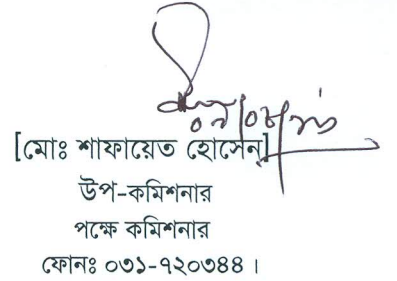 [মোঃ শাফায়েত হোসেন]
উপ-কমিশনার
পক্ষে কমিশনার
ফোনঃ ০৩১-৭২০৩৪৪ ।